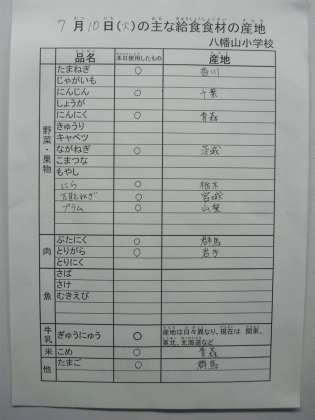 7月10日(火)の主な給食食材の産地
八幡山小学校
品名 本日使用したもの 産地
野菜・果物
たまねぎ ○ 香川
じゃがいも
にんじん ○ 千葉
しょうが
にんにく ○ 青森
きゅうり
キャベツ
ながねぎ ○ 茨城
こまつな
もやし
にら ○ 栃木
万能ねぎ ○ 宮城
プラム ○ 山梨
肉
ぶたにく ○ 群馬
とりがら ○ 岩手
とりにく
魚
さば
さけ
むきえび
牛乳 ぎゅうにゅう ○ 産地は日々異なり、現在は 関東、東北、北海道など
米 こめ ○ 青森
他 たまご ○ 群馬